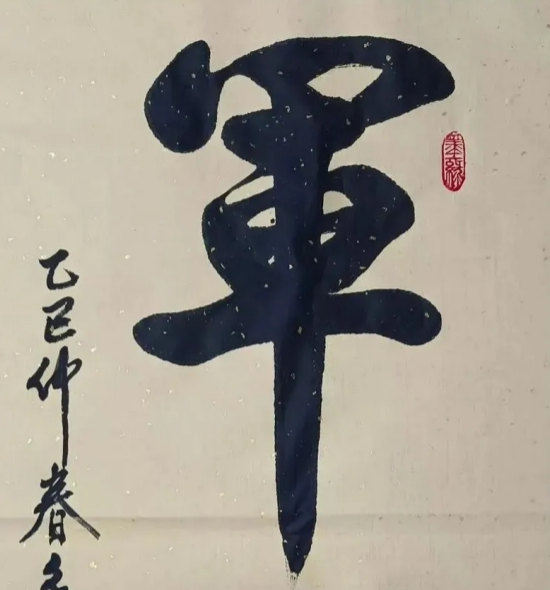 軍
乙巳仲春